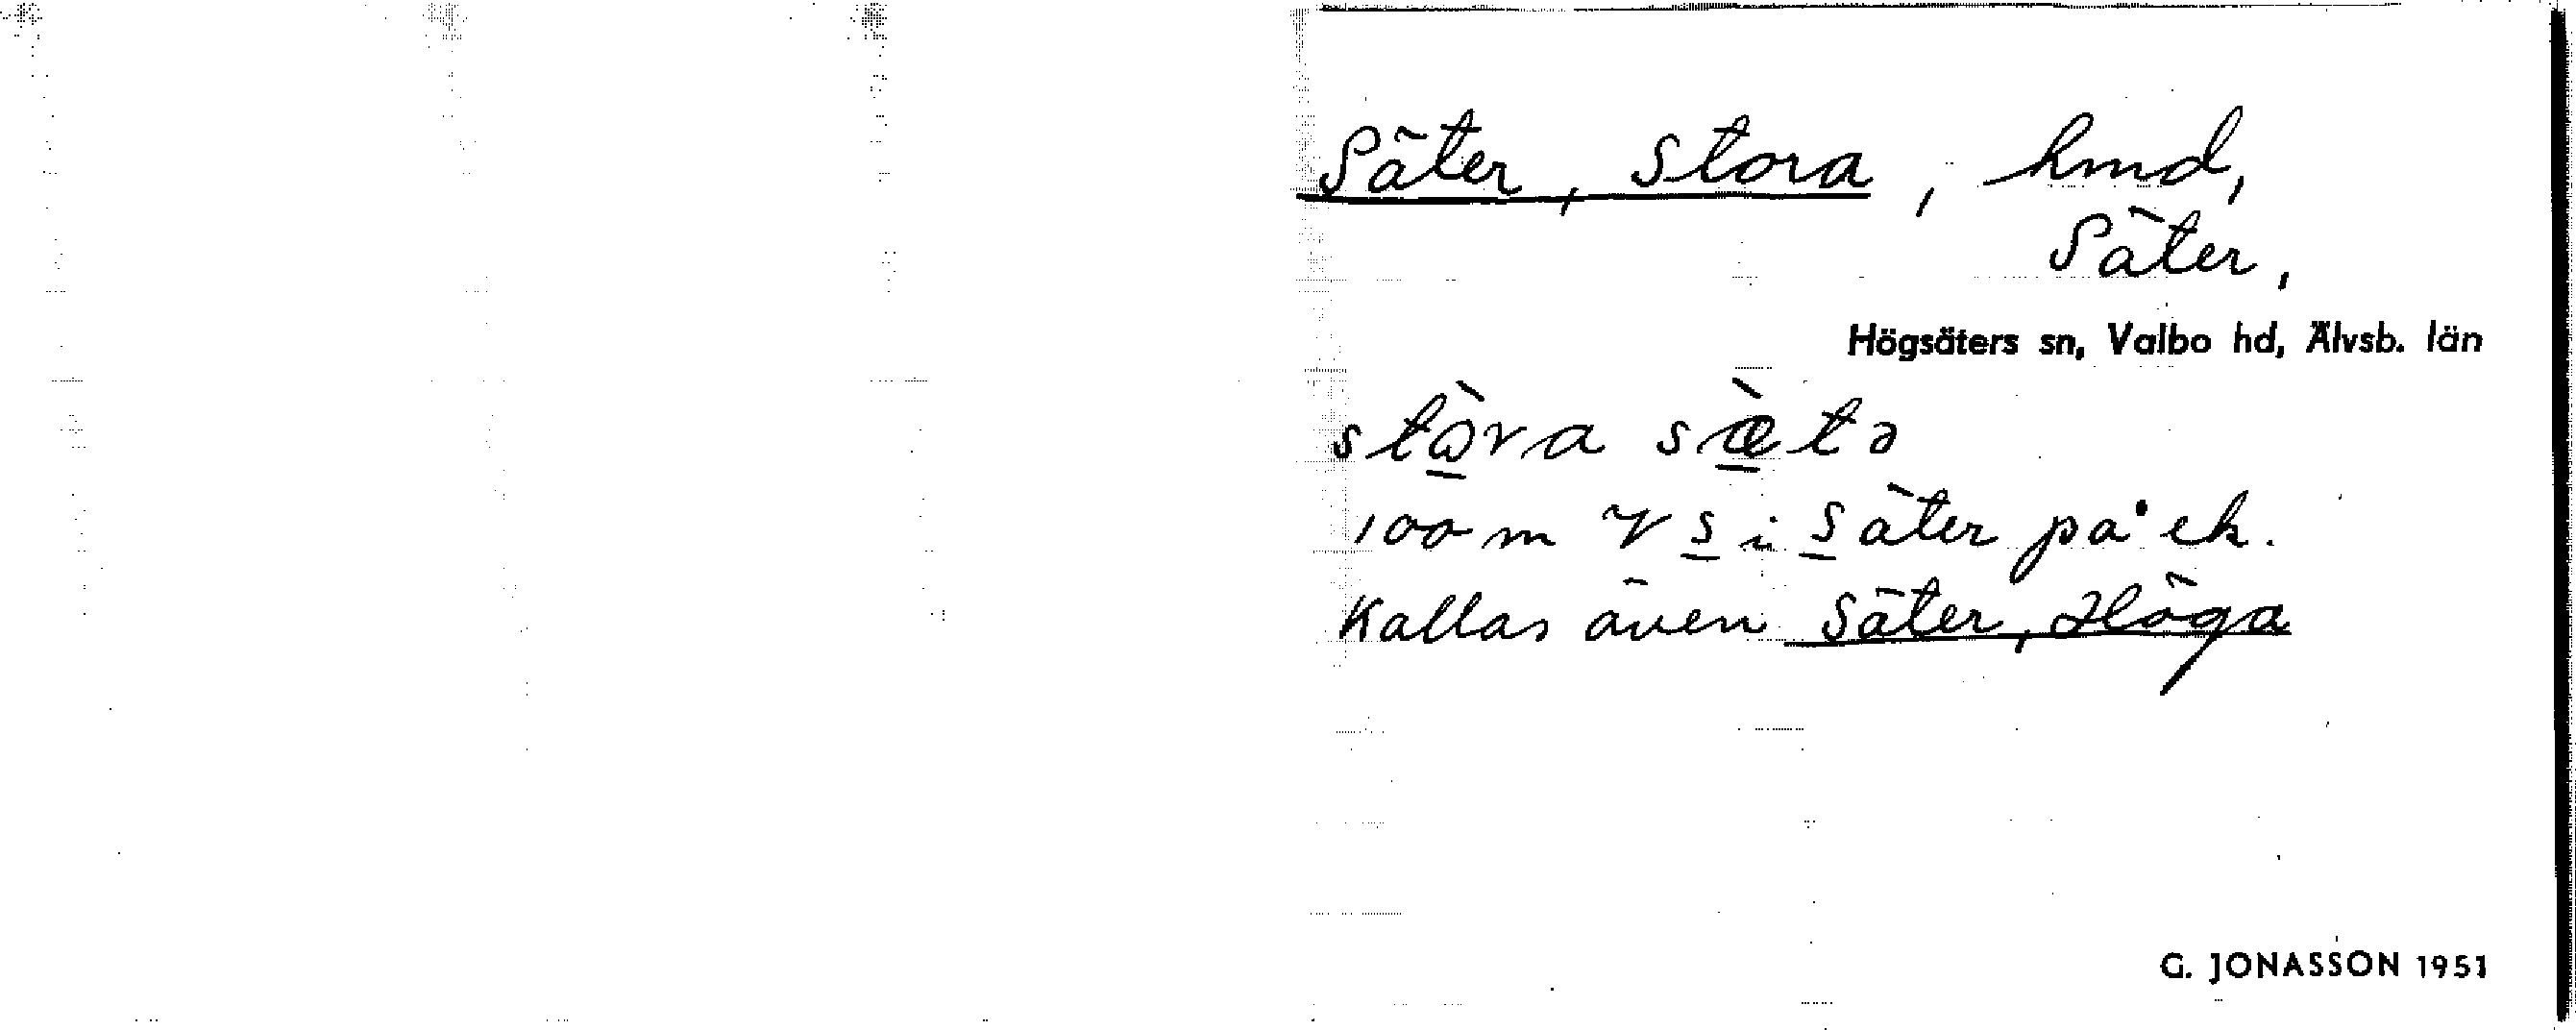 Säter, Stora, hmd,
Säter,
Högsäters sn, Valbo hd, Älvsb. län
stὼ̱ra sæ̱̀tə
100 m V S̲ i S̲äter på ek.
Kallas även Säter, Höga
G. JONASSON 1951